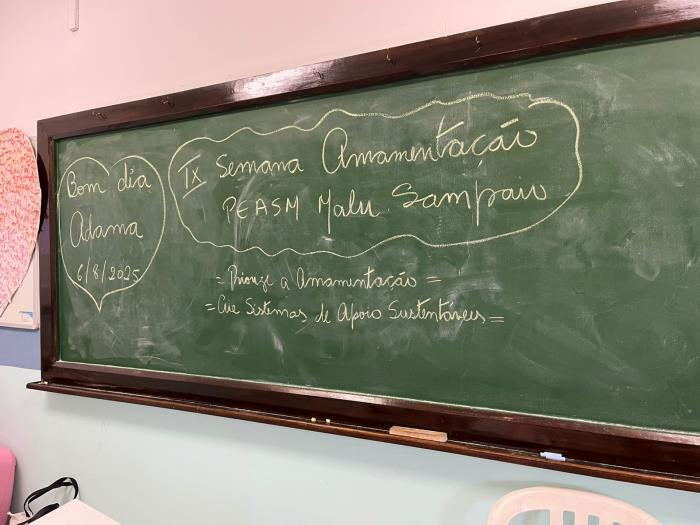 Bom dia
Adama
6/8/2025
IX Semana Amamentação
PEASM Malu Sampaio
= Priorize a Amamentação =
= Crie Sistemas de Apoio Sustentáveis =